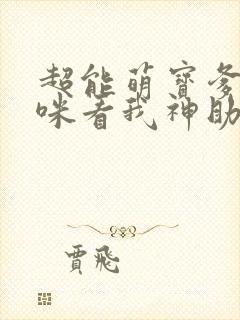 超能萌寶爹
咪看我神助
賈飛